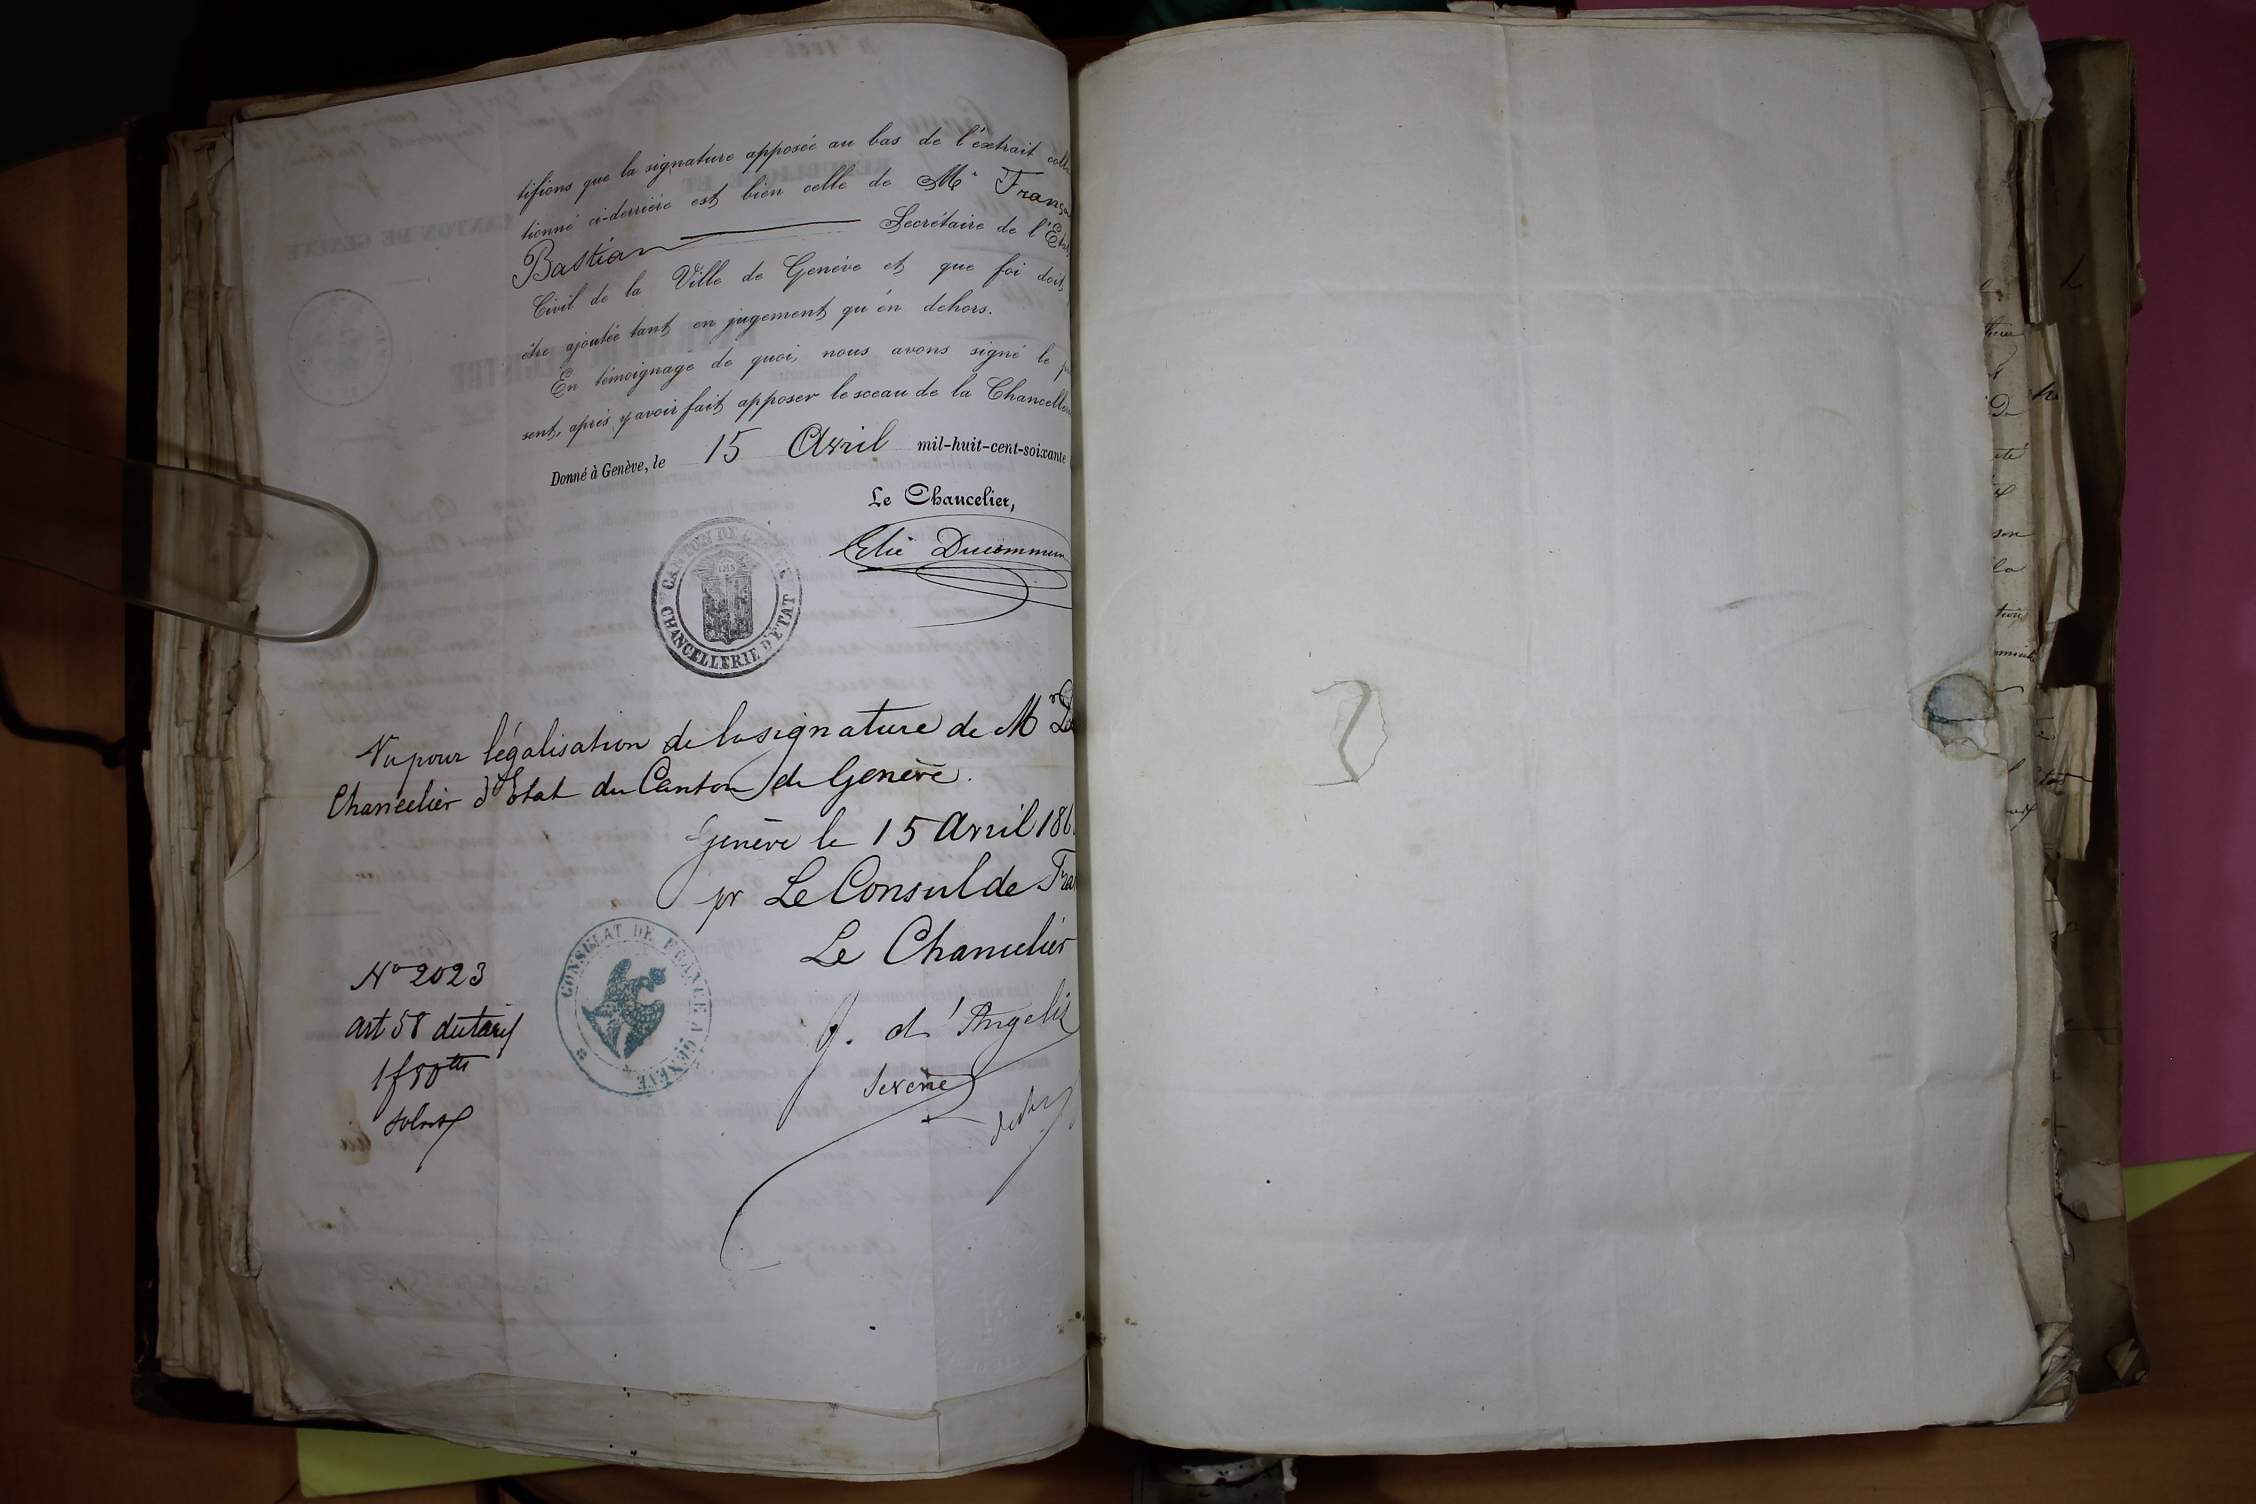 tifions que la signature apposée au bas de l'éxtrait coll
tionné ci-derrière est bien celle de Mr Franço
Bastian Secrétaire de l'Etat
Civil de la Ville de Genève et que foi doit
être ajoutée tant en jugement qu'en dehors.
En témoignage de quoi, nous avons signé le p
sent, après y avoir fait apposer le sceau de la Chancelle
Donné à Genève, le 15 Avril mil-huit-cent-soixante
Le Chancelier,
Elie Ducommun
CANTON DE GENÈVE
CHANCELLERIE D'ÉTAT
Vu pour légalisation de la signature de Mr
Chancelier d'Etat du Canton de Genève.
Genève le 15 Avril 186
pr Le Consul de Fra
Le Chancelier
CONSULAT DE FRANCE A GENÈVE
No 2023
art 58 du tarif
J. d'Angelis